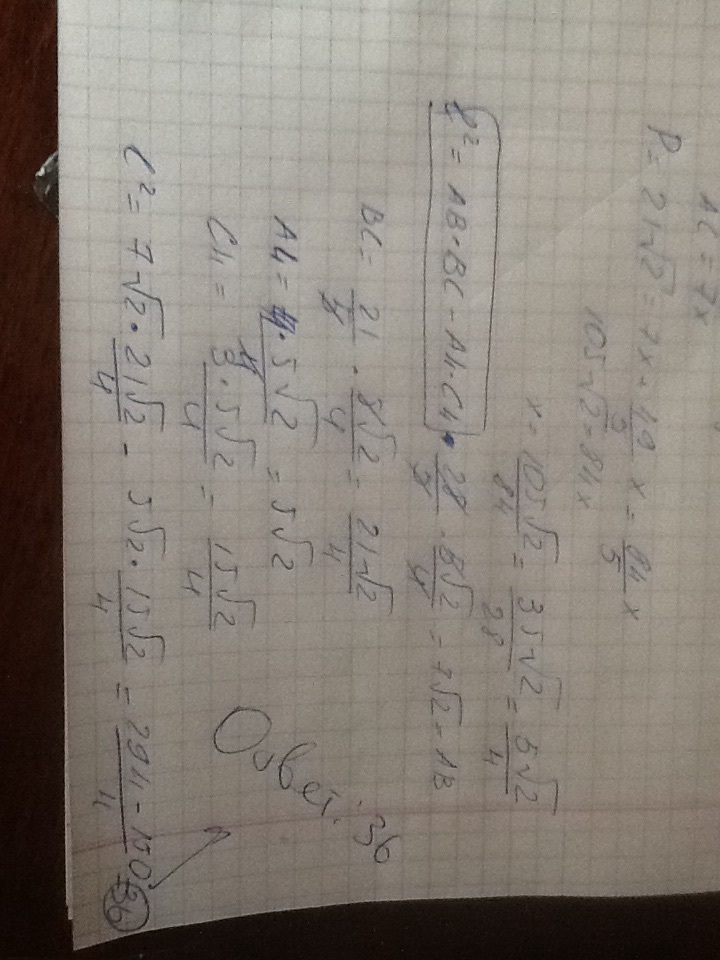 AC = 7x
P = 21√2 = 7x + 49/5 x = 84/5 x
105√2 = 84x
x = 105√2/84 = 35√2/28 = 5√2/4
l² = AB·BC - AL·CL
28/5 · 5√2/4 = 7√2 = AB
BC = 21/5 · 5√2/4 = 21√2/4
AL = 4·5√2/4 = 5√2
CL = 3·5√2/4 = 15√2/4
l² = 7√2 · 21√2/4 - 5√2 · 15√2/4 = 294 - 150/4 = 36
Ответ: 36